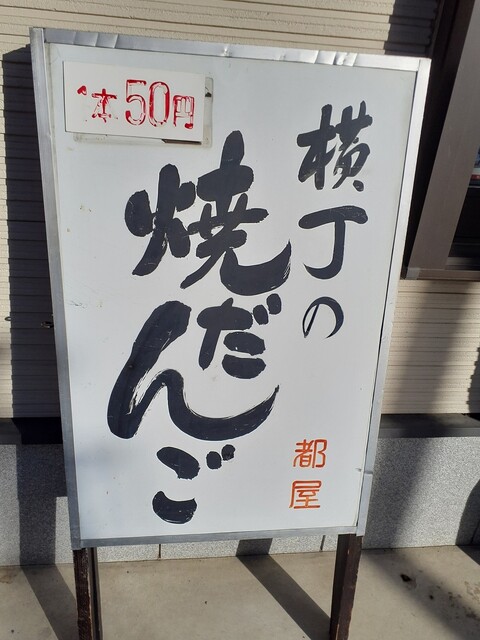 一本50円
横丁の
焼だんご
都屋